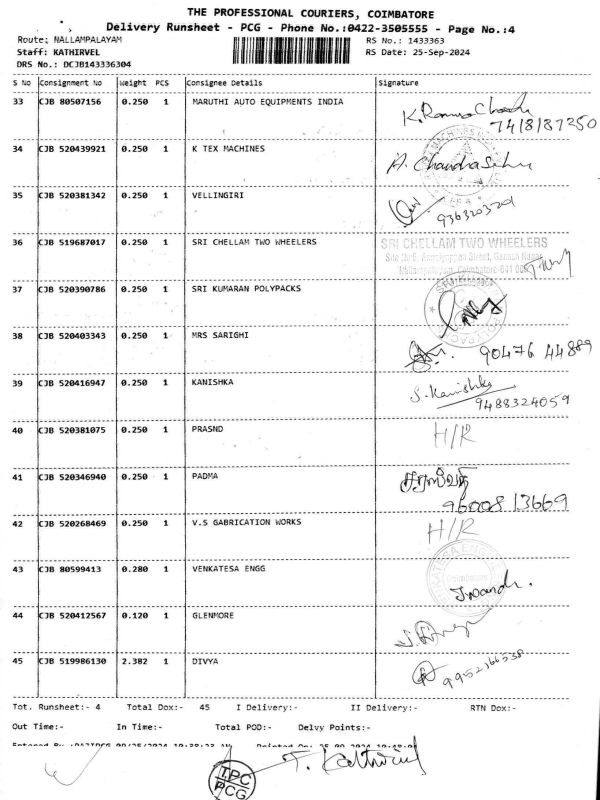 THE PROFESSIONAL COURIERS, COIMBATORE
Delivery Runsheet - PCG - Phone No.:0422-3505555 - Page No.:4
Route: NALLAMPALAYAM
RS No.: 1433363
Staff: KATHIRVEL
RS Date: 25-Sep-2024
DRS No.: DCJB143336304
S No Consignment No Weight PCS Consignee Details Signature
33 CJB 80507156 0.250 1 MARUTHI AUTO EQUIPMENTS INDIA
7418187250
34 CJB 520439921 0.250 1 K TEX MACHINES A. Chandrasekar
35 CJB 520381342 0.250 1 VELLINGIRI
9363203201
36 CJB 519687017 0.250 1 SRI CHELLAM TWO WHEELERS SRI CHELLAM TWO WHEELERS
37 CJB 520390786 0.250 1 SRI KUMARAN POLYPACKS
38 CJB 520403343 0.250 1 MRS SARIGHI
90476 44889
39 CJB 520416947 0.250 1 KANISHKA S. Kanishka
9488324059
40 CJB 520381075 0.250 1 PRASND H/R
41 CJB 520346940 0.250 1 PADMA சரஸ்வதி
96008 13669
42 CJB 520268469 0.250 1 V.S GABRICATION WORKS H/R
43 CJB 80599413 0.280 1 VENKATESA ENGG
44 CJB 520412567 0.120 1 GLENMORE
45 CJB 519986130 2.382 1 DIVYA
9952366538
Tot. Runsheet:- 4 Total Dox:- 45 I Delivery:- II Delivery:- RTN Dox:-
Out Time:- In Time:- Total POD:- Delvy Points:-
T. Kathirvel
TPC
PCG